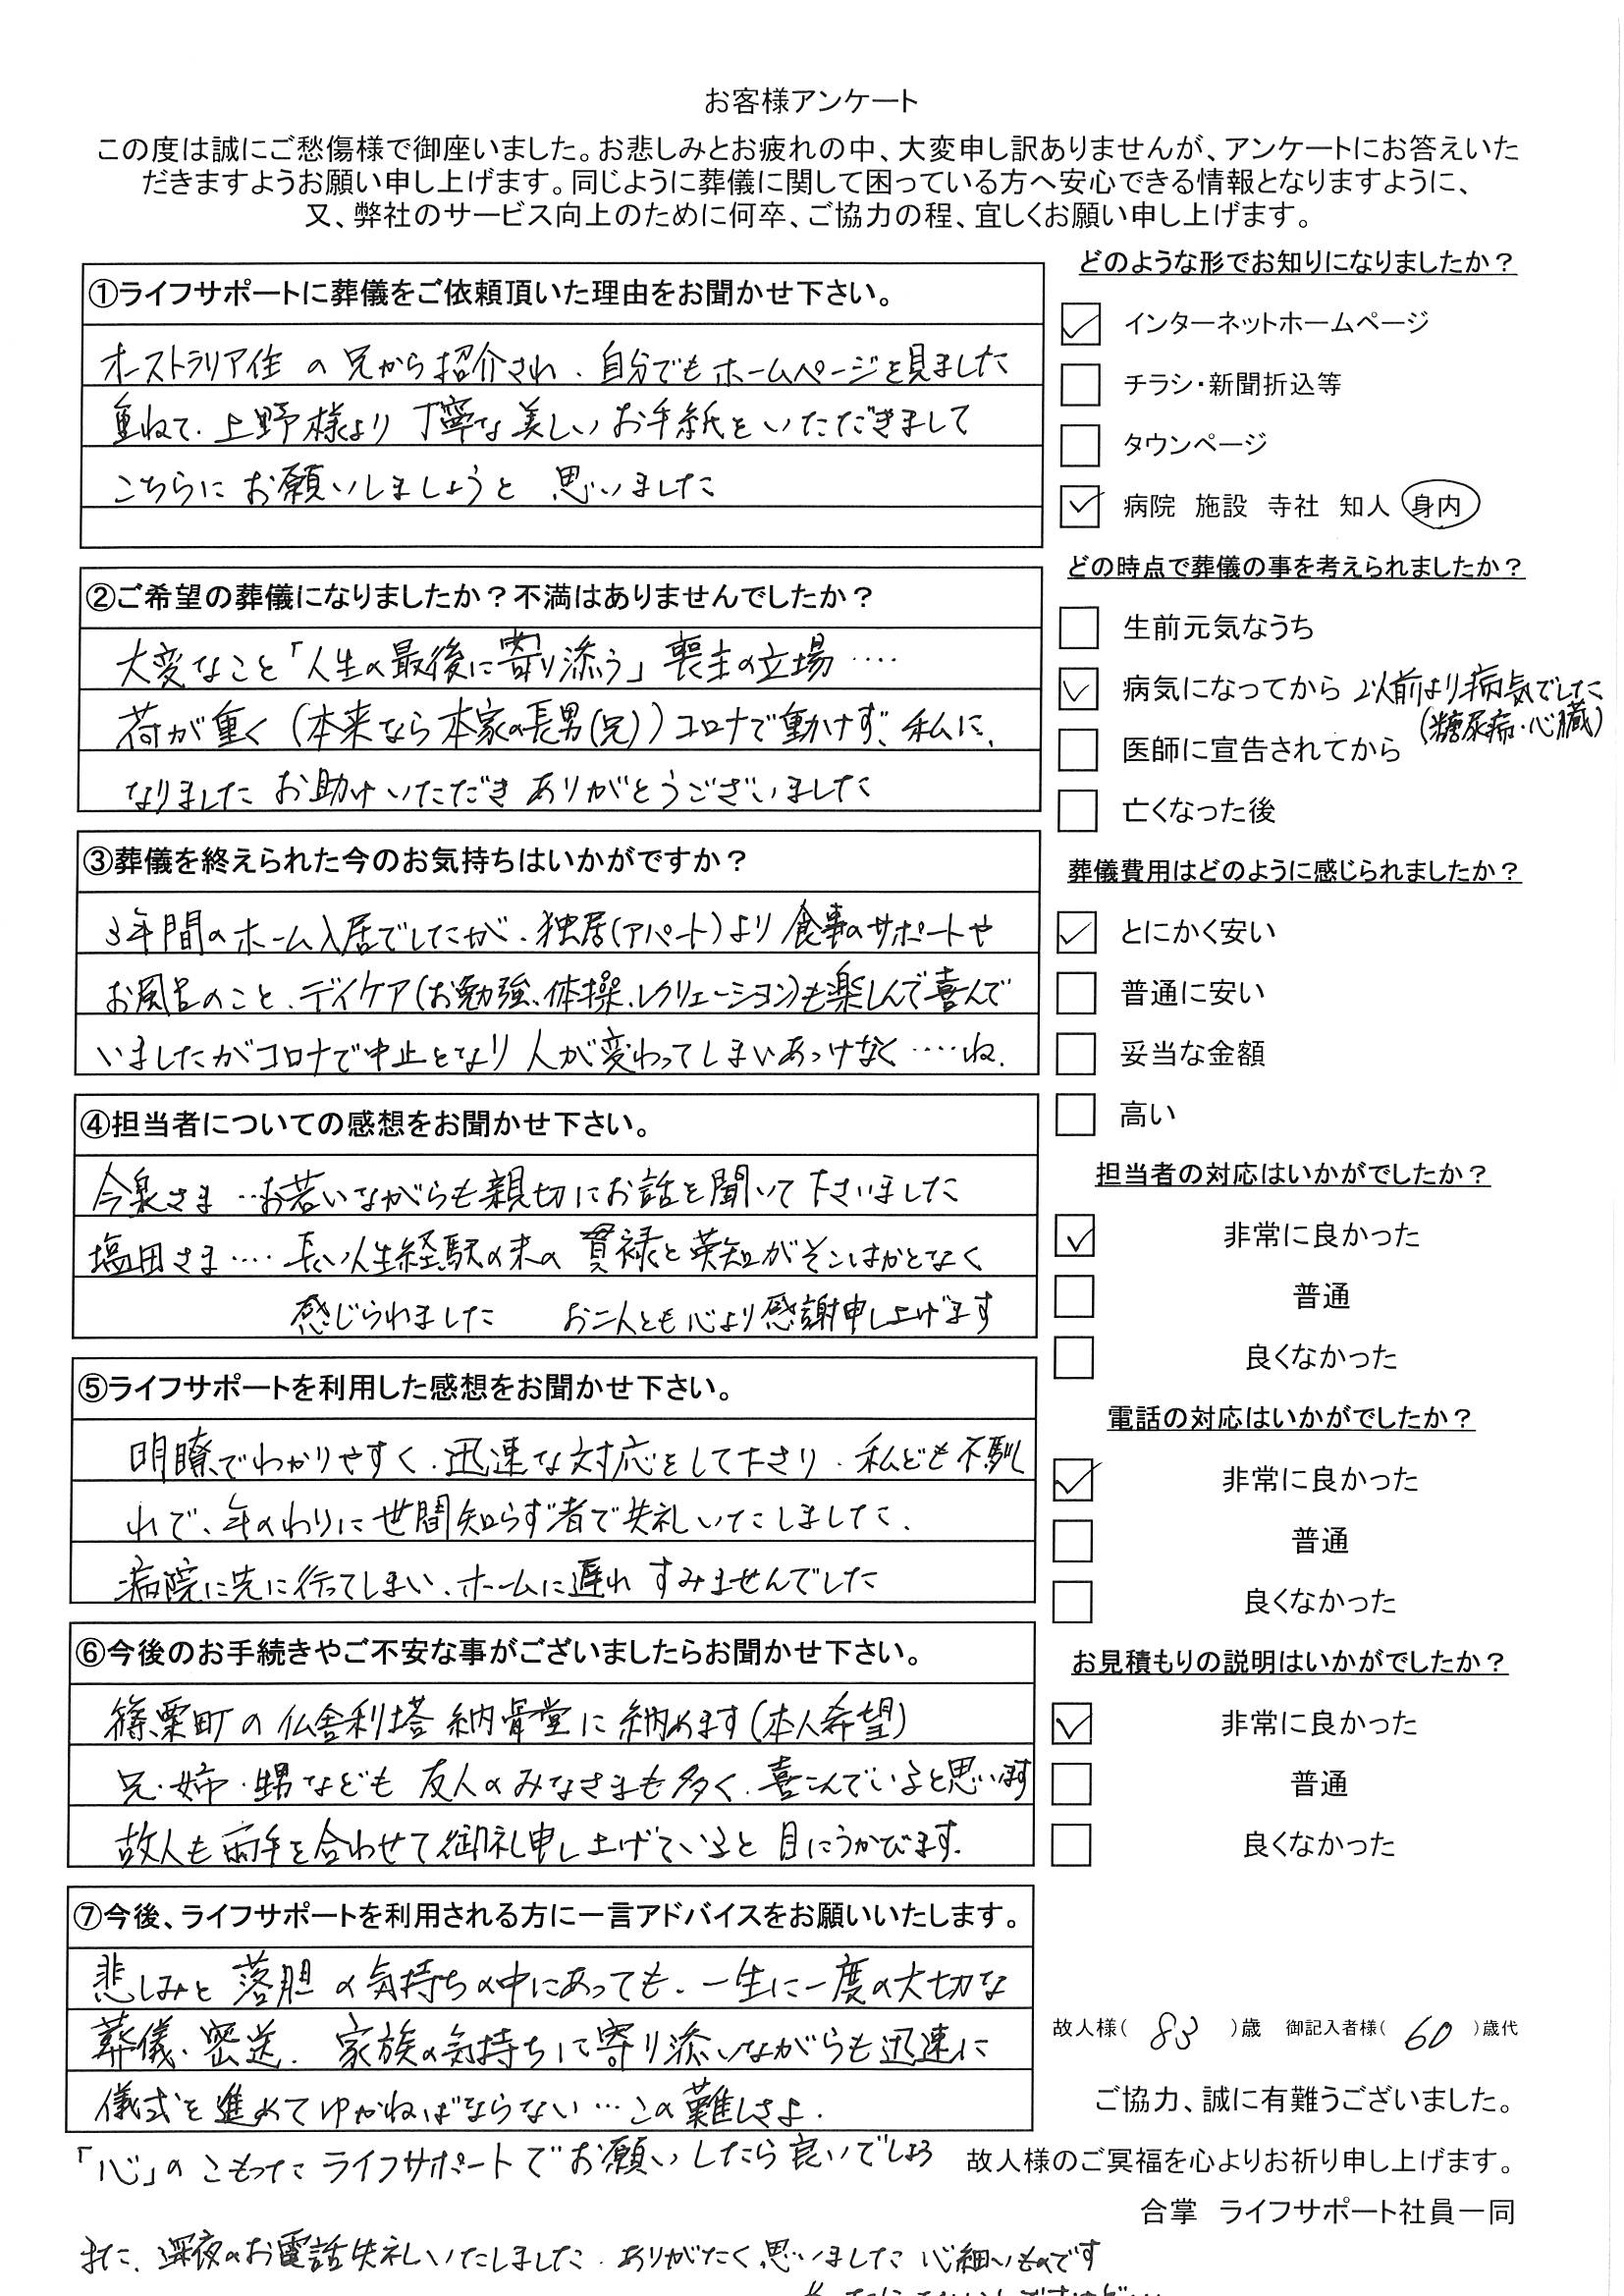 お客様アンケート
この度は誠にご愁傷様で御座いました。お悲しみとお疲れの中、大変申し訳ありませんが、アンケートにお答えいた
だきますようお願い申し上げます。同じように葬儀に関して困っている方へ安心できる情報となりますように、
又、弊社のサービス向上のために何卒、ご協力の程、宜しくお願い申し上げます。
①ライフサポートに葬儀をご依頼頂いた理由をお聞かせ下さい。
オーストラリア住の兄から紹介され、自分でもホームページを見ました
重ねて、上野様より丁寧な美しいお手紙をいただきまして
こちらにお願いしましょうと思いました
②ご希望の葬儀になりましたか？不満はありませんでしたか？
大変なこと「人生の最後に寄り添う」喪主の立場‥‥
荷が重く（本来なら本家の長男（兄））コロナで動けず、私に、
なりました お助けいただきありがとうございました
③葬儀を終えられた今のお気持ちはいかがですか？
3年間のホーム入居でしたが、独居（アパート）より食事のサポートや
お風呂のこと、デイケア（お勉強、体操、レクリェーション）も楽しんで喜んで
いましたがコロナで中止となり人が変わってしまいあっけなく‥‥ね.
④担当者についての感想をお聞かせ下さい。
今泉さま‥お若いながらも親切にお話を聞いて下さいました
塩田さま‥‥長い人生経験の末の貫禄と英知がそこはかとなく
感じられました お二人とも心より感謝申し上げます
⑤ライフサポートを利用した感想をお聞かせ下さい。
明瞭でわかりやすく、迅速な対応をして下さり、私ども不馴
れで、年のわりに世間知らず者で失礼いたしました.
病院に先に行ってしまい、ホームに遅れすみませんでした
⑥今後のお手続きやご不安な事がございましたらお聞かせ下さい。
篠栗町の仏舎利塔納骨堂に納めます（本人希望）
兄・姉・甥なども友人のみなさまも多く、喜こんでいると思います
故人も両手を合わせて御礼申し上げていると目にうかびます.
⑦今後、ライフサポートを利用される方に一言アドバイスをお願いいたします。
悲しみと落胆の気持ちの中にあっても、一生に一度の大切な
葬儀、密送、家族の気持ちに寄り添いながらも迅速に
儀式を進めてゆかねばならない…この難しさよ.
「心」のこもったライフサポートでお願いしたら良いでしょう
また、深夜のお電話失礼いたしました.ありがたく思いました 心細いものです
どのような形でお知りになりましたか？
インターネットホームページ
チラシ・新聞折込等
タウンページ
病院 施設 寺社 知人 身内
どの時点で葬儀の事を考えられましたか？
生前元気なうち
病気になってから 以前より病気でした
（糖尿病・心臓）
医師に宣告されてから
亡くなった後
葬儀費用はどのように感じられましたか？
とにかく安い
普通に安い
妥当な金額
高い
担当者の対応はいかがでしたか？
非常に良かった
普通
良くなかった
電話の対応はいかがでしたか？
非常に良かった
普通
良くなかった
お見積もりの説明はいかがでしたか？
非常に良かった
普通
良くなかった
故人様（ 83 ）歳 御記入者様（ 60 ）歳代
ご協力、誠に有難うございました。
故人様のご冥福を心よりお祈り申し上げます。
合掌 ライフサポート社員一同